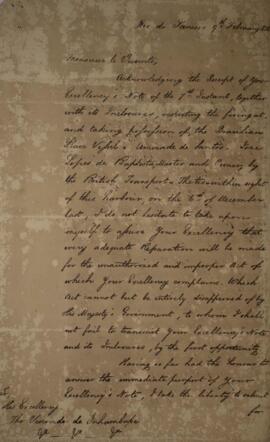 Rio de Janeiro 9th February
Monsieur le Vicomte,
Acknowledging the Receipt of Your
Excellency's Note of the 7th Instant, together
with its Inclosures, respecting the firing at
and taking possession, of the Brazilian
Slave Vessel Amizade de Santos, Jose
Lopes de Baptista Master and Owner, by
the British Transport Thetis within sight
of this Harbour, on the 6th of December
last, I do not hesitate to take upon
myself to assure Your Excellency that
very adequate Reparation will be made
for the unauthorized and improper Act of
which Your Excellency complains. Which
Act cannot but be entirely disapproved of by
His Majesty's Government, to whom I shall
not fail to transmit Your Excellency's Note
and its Inclosures, by the first opportunity.
Having so far had the honour to
answer the immediate purport of Your
Excellency's Note, I take the liberty to submit
for
His Excellency
The Viscount de Inhambupe
&c &c &c